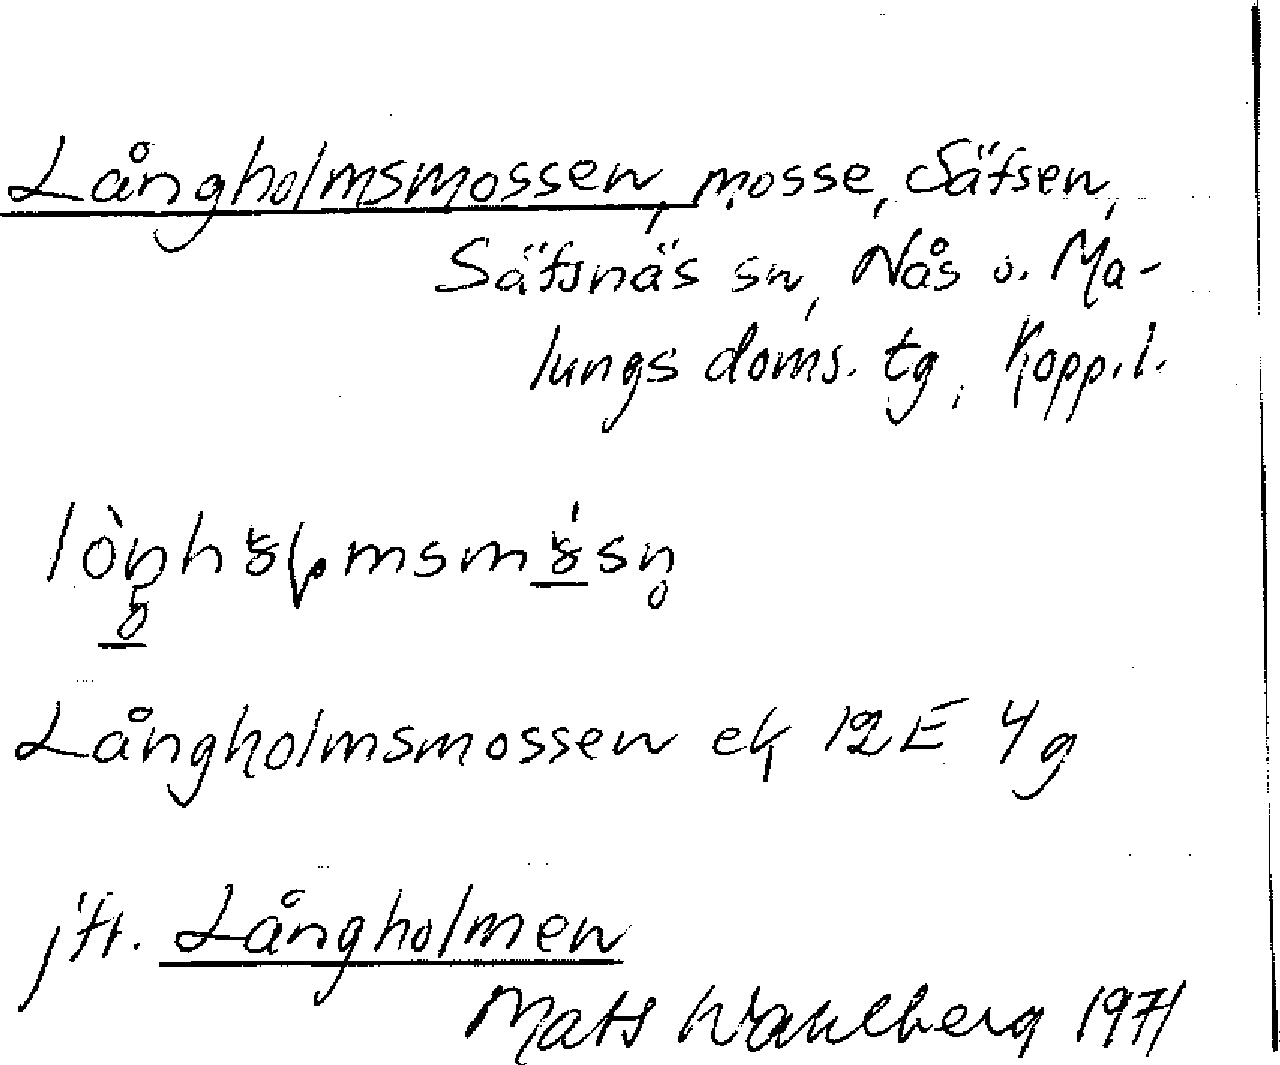 Långholmsmossen, mosse, Säfsen,
Säfsnäs sn, Nås o. Ma-
lungs doms. tg, Kopp. l.
Långholmsmossen ek 12E 4g
jfr. Långholmen
Mats Wahlberg 1971